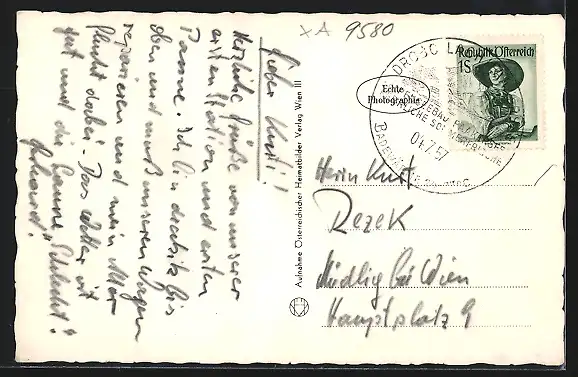 XA 9580
Lieber Kurti!
Herzliche Grüße von unserer
ersten Station und ersten
Panne. Ich bin dreckig bis
oben und muß unseren Wagen
reparieren und mein Alter
flucht dabei. Das Wetter ist
gut und die Laune "Schlecht".
Gerhard
Aufnahme Österreichischer Heimatbilder Verlag Wien III
Echte
Photographie
Republik Österreich
1S
01.7.57
Herrn Kurt
Rezek
Mödling bei Wien
Hauptplatz 9